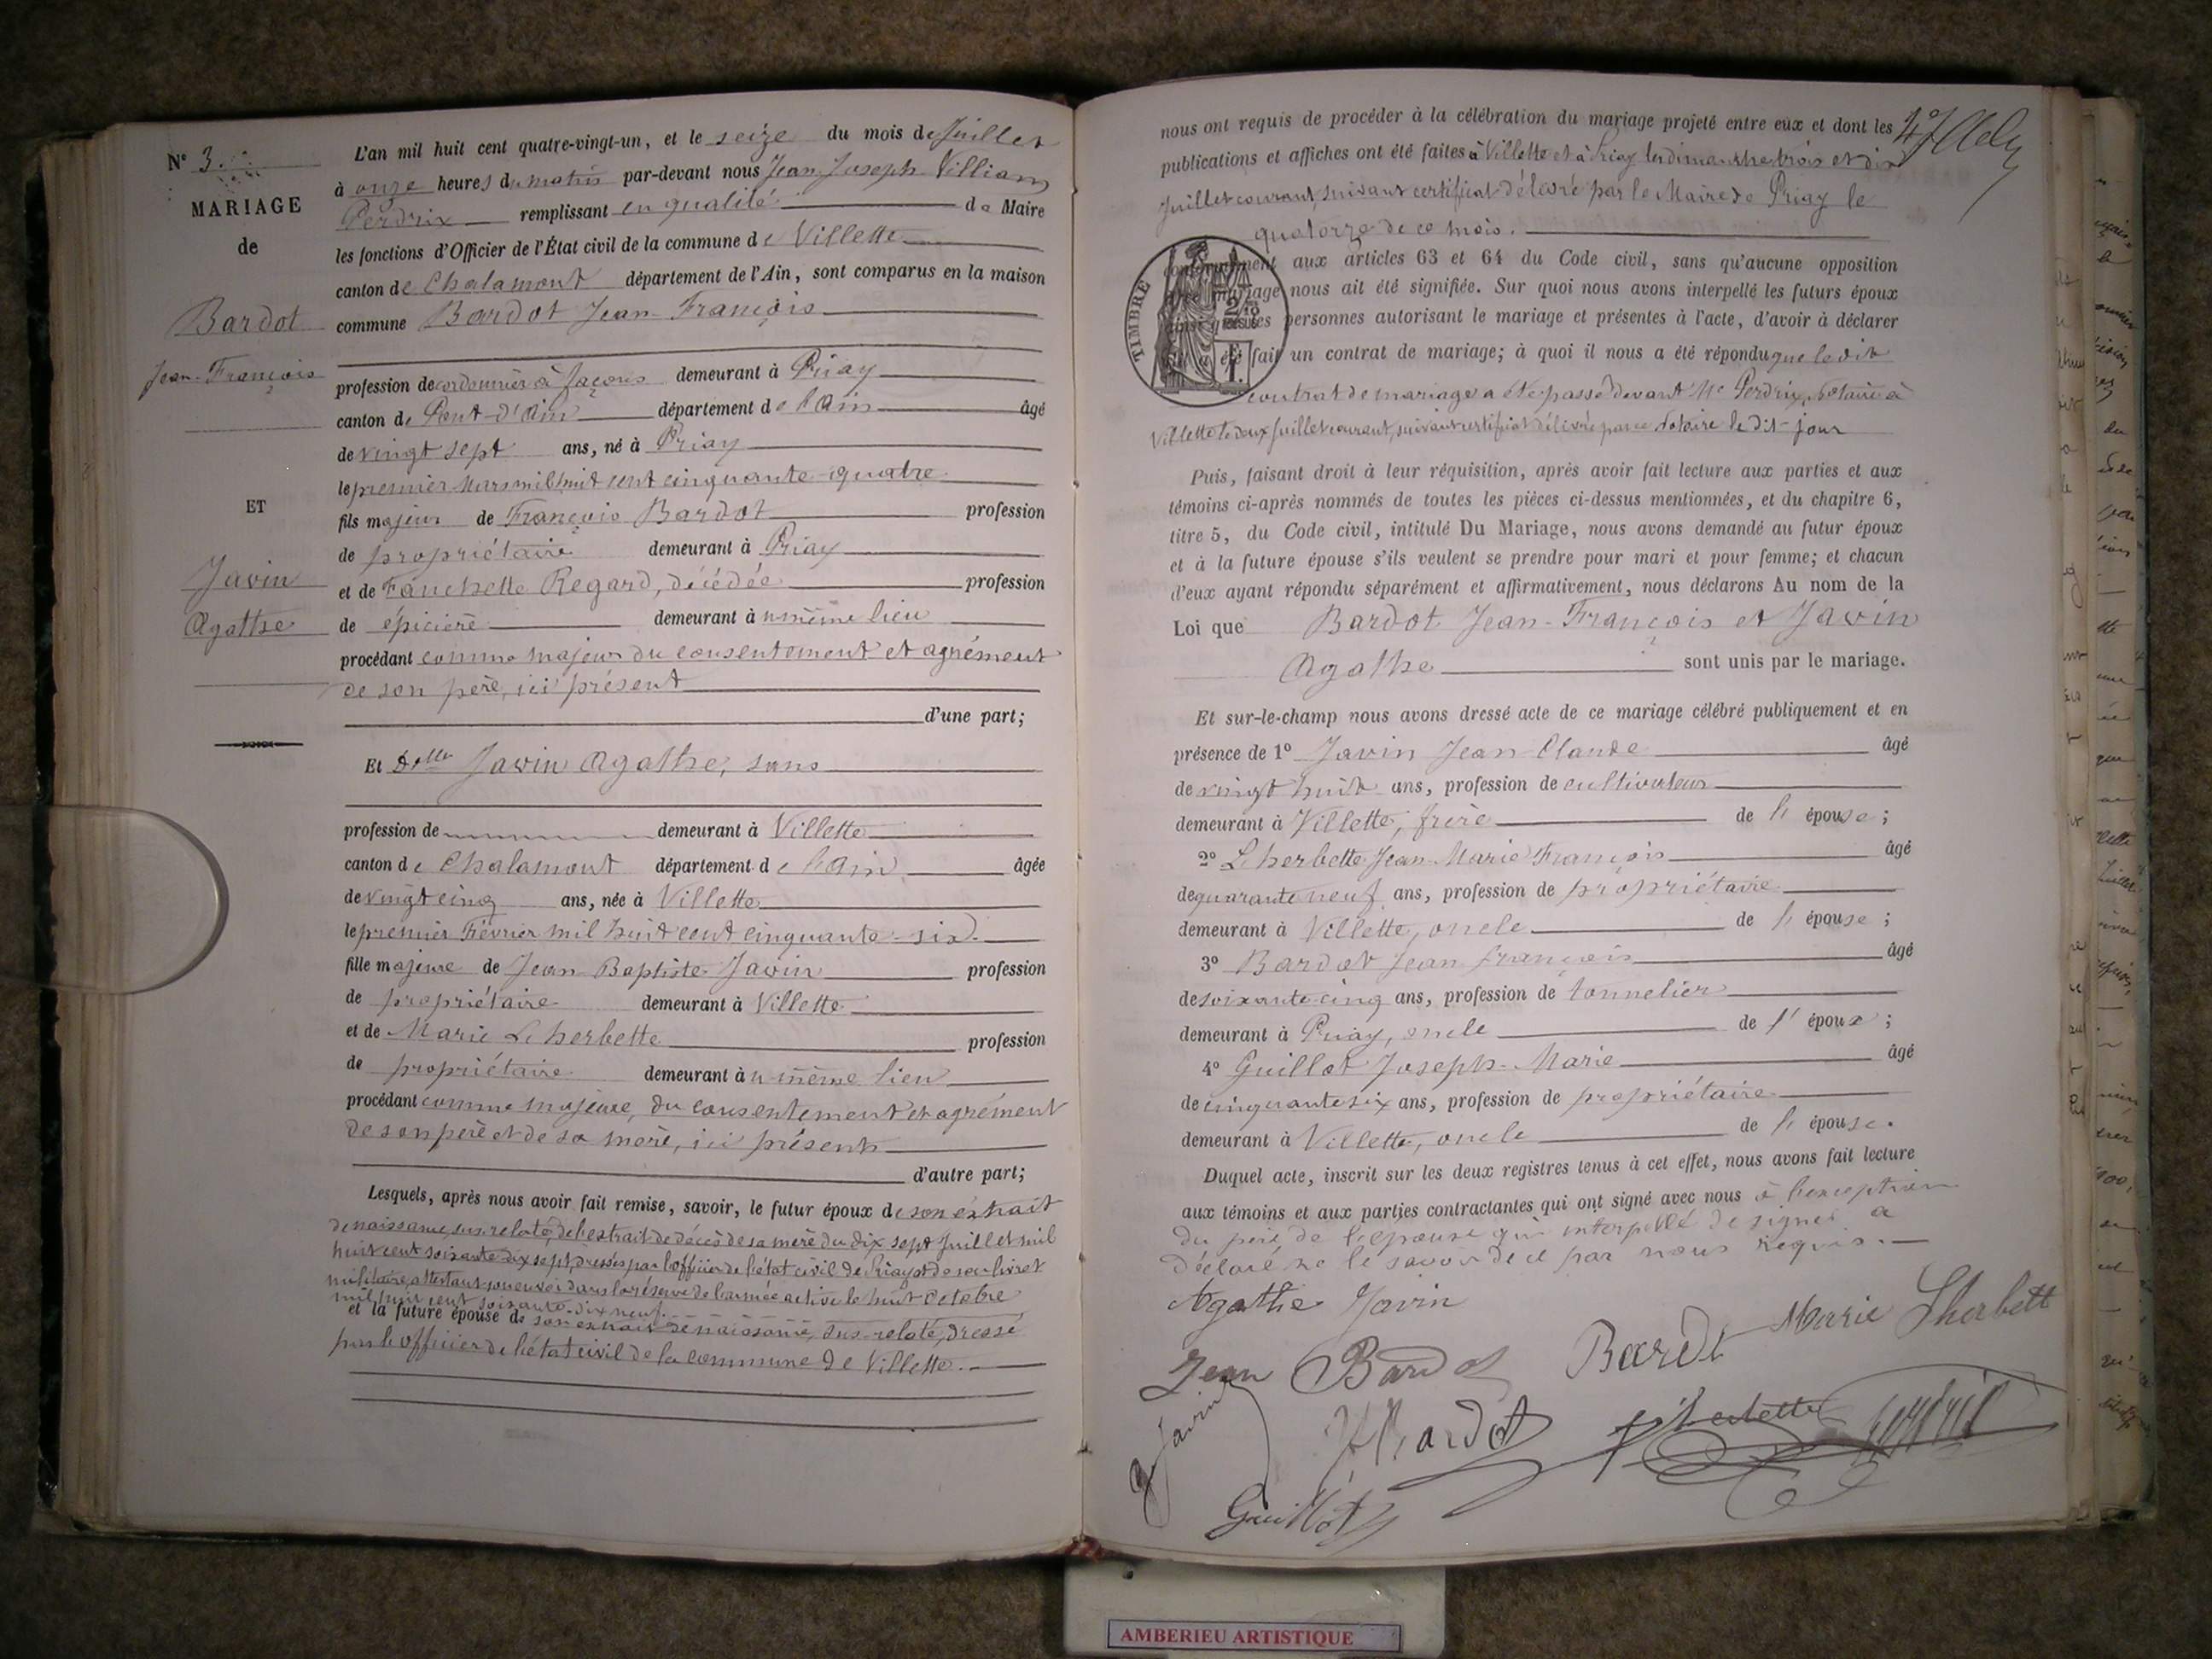 N° 3.
MARIAGE
de
Bardot
Jean-François
ET
Javin
Agathe
L'an mil huit cent quatre-vingt-un, et le seize du mois de Juillet
à onze heures du matin par-devant nous Jean Joseph Villiam
Perdrix remplissant en qualité de Maire
les fonctions d'Officier de l'État civil de la commune de Villette
canton de Chalamont département de l'Ain, sont comparus en la maison
commune Bardot Jean-François
profession de cordonnier à façons demeurant à Priay
canton de Pont-d'Ain département de l'Ain âgé
de vingt sept ans, né à Priay
le premier Mars mil huit cent cinquante-quatre
fils majeur de François Bardot profession
de propriétaire demeurant à Priay
et de Fanchette Regard, décédée profession
de épicière demeurant à u même lieu
procédant comme majeur du consentement et agrément
de son père, ici présent
d'une part;
Et Delle Javin Agathe, sans
profession de demeurant à Villette
canton de Chalamont département de l'Ain âgée
de vingt cinq ans, née à Villette
le premier Février mil huit cent cinquante-six.
fille majeure de Jean Baptiste Javin profession
de propriétaire demeurant à Villette
et de Marie Lherbette profession
de propriétaire demeurant à u même lieu
procédant comme majeure, du consentement et agrément
de son père et de sa mère, ici présents
d'autre part;
Lesquels, après nous avoir fait remise, savoir, le futur époux de son extrait
de naissance, sus-relaté, de l'extrait de décès de sa mère du dix sept Juillet mil
huit cent soixante dix sept, dressés par l'officier de l'état civil de Priay et de son livret
militaire, attestant son envoi dans la réserve de l'armée active le huit Octobre
mil huit cent soixante-dix neuf.
et la future épouse de son extrait de naissance, sus-relaté, dressé
par l'officier de l'état civil de la commune de Villette.
nous ont requis de procéder à la célébration du mariage projeté entre eux et dont les
publications et affiches ont été faites à Villette et à Priay les dimanche trois et dix
Juillet courant, suivant certificat délivré par le Maire de Priay le
quatorze de ce mois.
TIMBRE
conformément aux articles 63 et 64 du Code civil, sans qu'aucune opposition
mariage nous ait été signifiée. Sur quoi nous avons interpellé les futurs époux
les personnes autorisant le mariage et présentes à l'acte, d'avoir à déclarer
été fait un contrat de mariage; à quoi il nous a été répondu que le dit
contrat de mariage a été passé devant Me Perdrix, Notaire à
Villette le deux Juillet courant, suivant certificat délivré par ce Notaire le dit jour
Puis, faisant droit à leur réquisition, après avoir fait lecture aux parties et aux
témoins ci-après nommés de toutes les pièces ci-dessus mentionnées, et du chapitre 6,
titre 5, du Code civil, intitulé Du Mariage, nous avons demandé au futur époux
et à la future épouse s'ils veulent se prendre pour mari et pour femme; et chacun
d'eux ayant répondu séparément et affirmativement, nous déclarons Au nom de la
Loi que Bardot Jean-François et Javin
Agathe sont unis par le mariage.
Et sur-le-champ nous avons dressé acte de ce mariage célébré publiquement et en
présence de 1° Javin Jean Claude âgé
de vingt huit ans, profession de cultivateur
demeurant à Villette, frère de l' épouse;
2° Lherbette Jean-Marie François âgé
de quarante neuf ans, profession de propriétaire
demeurant à Villette, oncle de l' épouse;
3° Bardot Jean françois âgé
de soixante-cinq ans, profession de tonnelier
demeurant à Priay, oncle de l' époux;
4° Guillot Joseph-Marie âgé
de cinquante six ans, profession de propriétaire
demeurant à Villette, oncle de l' épouse.
Duquel acte, inscrit sur les deux registres tenus à cet effet, nous avons fait lecture
aux témoins et aux parties contractantes qui ont signé avec nous à l'exception
du père de l'épouse qui interpellé de signer a
déclaré ne le savoir de ce par nous requis.
Agathe Javin
Jean Bardot Bardot Marie Lherbett
Javin Bardot Lherbette
Guillot
AMBERIEU ARTISTIQUE